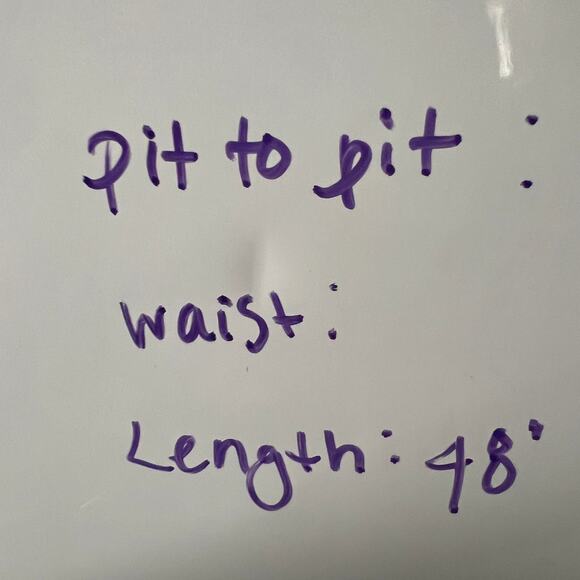 pit to pit :
waist:
Length: 48'